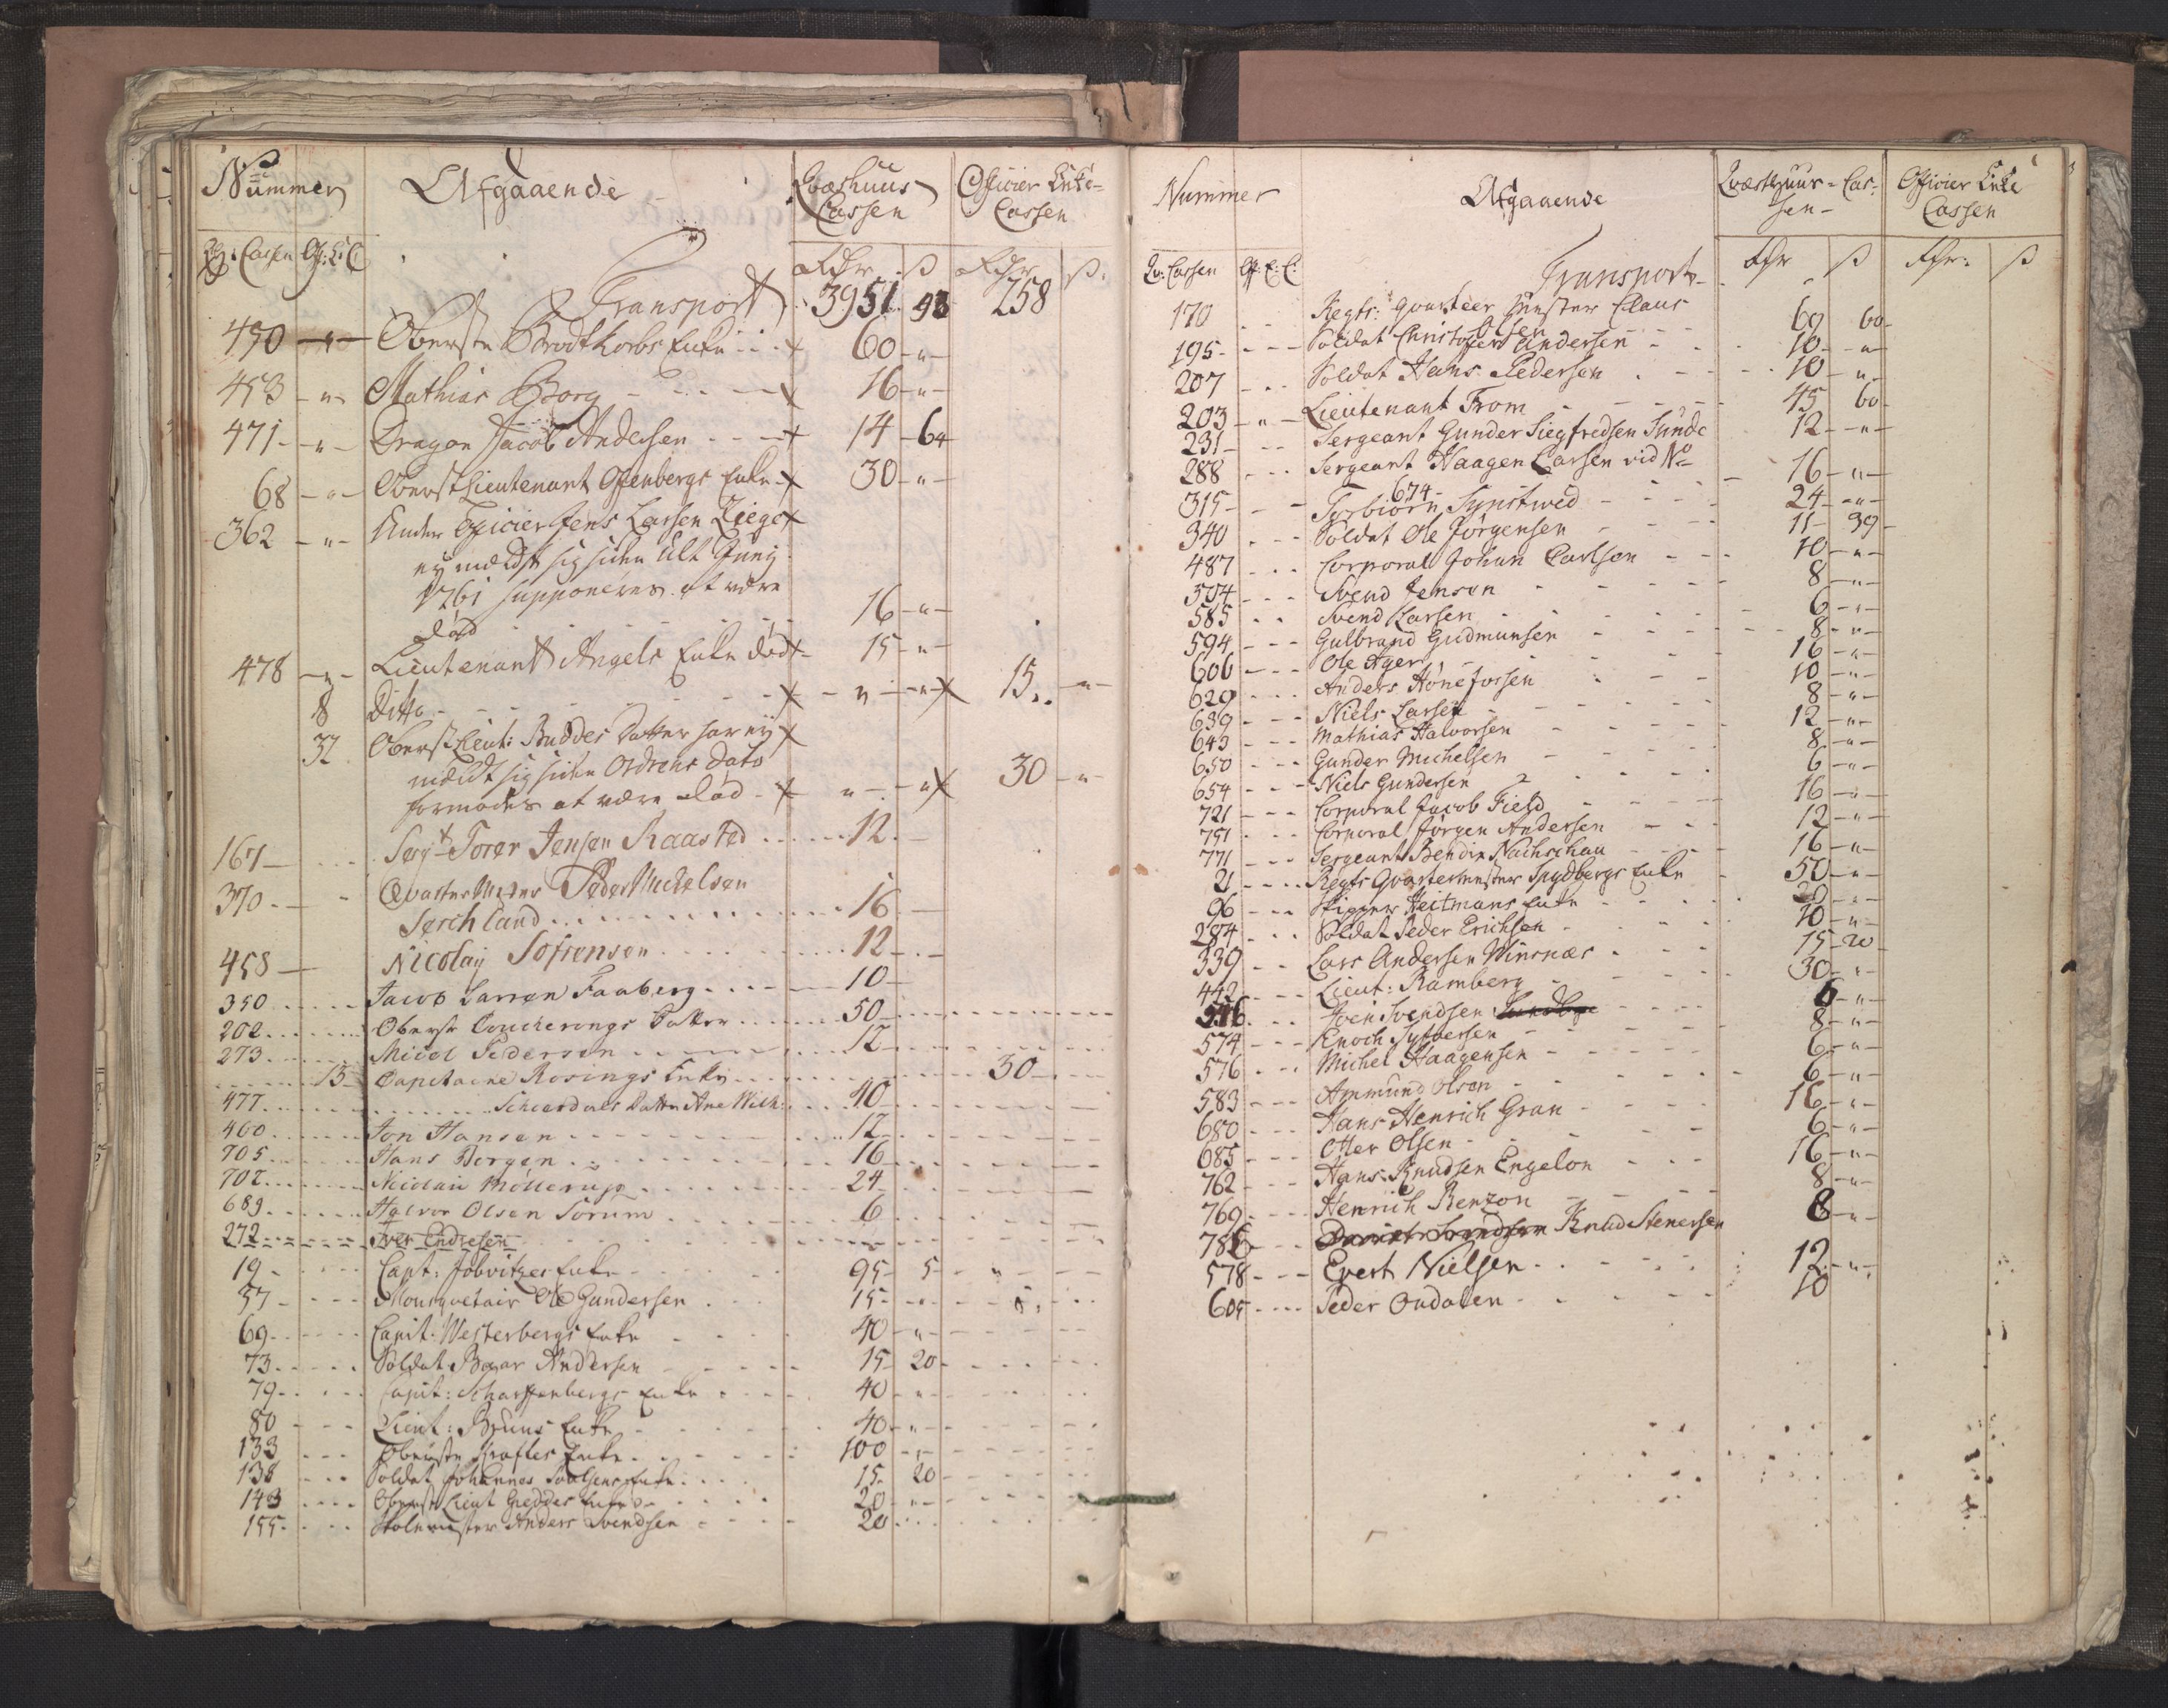 Nummer Afgaaende Qvæsthuus Cassen Officier Enke-Cassen
Qv: Cassen Of: E: C. Rdr ß Rdr ß
Transport 3951 93 258
450 - " - Oberste Brodtkorbs Enke 60 - " -
453 - " - Mathias Borg 16 - " -
471 - " - Dragon Jacob Andersen 14 - 64
68 - " - Oberst Lieutenant Offenbergs Enke 30 - " -
362 - " - Under Officier Jens Larsen Ziege
ey meldt sig siden Ult Juny
1761 supponeres at være
død 16 - " -
478 - " - Lieutenant Angels Enke død 15 - " -
8 Ditto - " - " 15 - " -
32 Oberst Lieut: Buddes Datter har ey
meldt sig siden Ordrens Dato
formodes at være død - " - " 30 - " -
167 Sergt Torer Jensen Raasted 12
370 Qvarteer Mester Peder Michelsen
Serchland 16
458 Nicolaij Sofrensen 12
350 Jacob Larsen Faaberg 10
202 Oberst Coucherongs Datter 50
273 Micel Pedersen 12
13 Capitaine Rosings Enke 30
477 Scheerdals Datter Ane Wilh: 40
460 Jon Hansen 12
705 Hans Bergen 16
702 Nicolai Möllerup 24
689 Halvor Olsen Sörum 6
272 Iver Endresen
19 Capt: Jobvitzes Enke 95 5
57 Mousquetair Ole Gundersen 15
69 Capit: Westerbergs Enke 40 - " -
73 Soldat Baar Andersen 15 20
79 Capit: Scharffenbergs Enke 40 - " -
80 Lieut: Bruuns Enke 40 - " -
133 Oberste Krafts Enke 100 - " -
138 Soldat Johannes Enke 15 20
143 Oberst Lieut Gieddes Enke 20 - " -
155 Skolemester Anders Svendsen 20
Nummer Afgaaende Qvæsthuus-Cassen- Officier Enke Cassen
Qv: Cassen Of: E: C: Rdr ß Rdr: ß
Transport
170 Regts: Qvarteer Mester Claus
Olsen 69 60
195 Soldat Christopher Andersen 10 - " -
207 Soldat Hans Pedersen 10 - " -
203 - " - Lieutenant From 45 60
231 Sergeant Gunder Siegfredsen Sunde 12 - " -
288 Sergeant Haagen Larsen vid No
674 16 - " -
315 Torbiörn Synstwed 24 - " -
340 Soldat Ole Jörgensen 11 39
487 Corporal Johan Carlsen 10 - " -
504 Svend Jensen 8 - " -
585 Svend Larsen 6 - " -
594 Gulbrand Gudmunsen 8 - " -
606 Ole Ager 16 - " -
629 Anders Hönefossen 10 - " -
639 Niels Larsen 8 - " -
643 Mathias Halvorsen 12 - " -
650 Gunder Michelsen 8 - " -
654 Niels Gundersen 6 - " -
721 Corporal Jacob Field 16 - " -
751 Corporal Jörgen Andersen 12 - " -
771 Sergeant Bendix Nachschau 16 - " -
21 Regts Qvarteermester Spydbergs Enke 50 - " -
96 Skipper Heitmans Enke 20 - " -
284 Soldat Peder Erichsen 10 - " -
339 Lars Andersen Winsnæs 15 20
442 Lieut: Ramberg 30 - " -
546 Iven Svendsen 6 - " -
574 Enoch Syversen 8 - " -
576 Michel Haagensen 6 - " -
583 Ammund Olsen 6 - " -
680 Hans Henrich Gran 16 - " -
685 Otter Olsen 6 - " -
762 Hans Knudsen Engelon 16 - " -
769 Henrich Renzon 8 - " -
786 Knud Stenersen 8 - " -
578 Evert Nielsen 12 - " -
605 Peder Ondalen 10